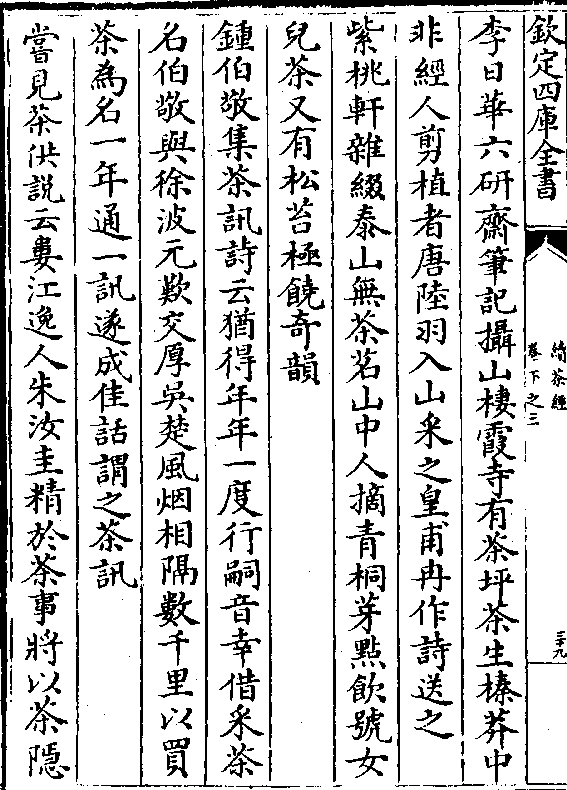 欽定四庫全書
續茶經
卷下之三
三十九
李日華六研齋筆記攝山棲霞寺有茶坪茶生榛莽中
非經人剪植者唐陸羽入山采之皇甫冉作詩送之
紫桃軒雜綴泰山無茶茗山中人摘青桐芽點飲號女
兒茶又有松苔極饒奇韻
鍾伯敬集茶訊詩云猶得年年一度行嗣音幸借采茶
名伯敬與徐波元歎交厚吳楚風烟相隔數千里以買
茶為名一年通一訊遂成佳話謂之茶訊
嘗見茶供說云婁江逸人朱汝圭精於茶事將以茶隱